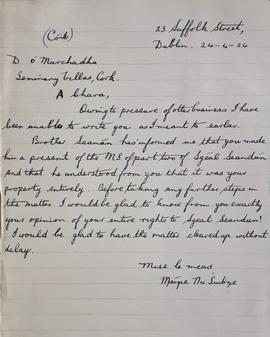 (Cork)
23 Suffolk Street,
Dublin. 24-4-24
D. Ó Murchadha
Seminary Villas, Cork.
A Chara,
Owing to pressure of other business I have
been unable to write you as I meant to earlier.
Brother Seanán has informed me that you made
him a present of the MS of part two of Sgeal Seandún
and that he understood from you that it was your
property entirely. Before taking any further steps in
the matter I would be glad to know from you exactly
your opinion of your entire rights to Sgeal Seandún!
I would be glad to have the matter cleared up without
delay.
Mise le meas,
Máire Nic Suibne